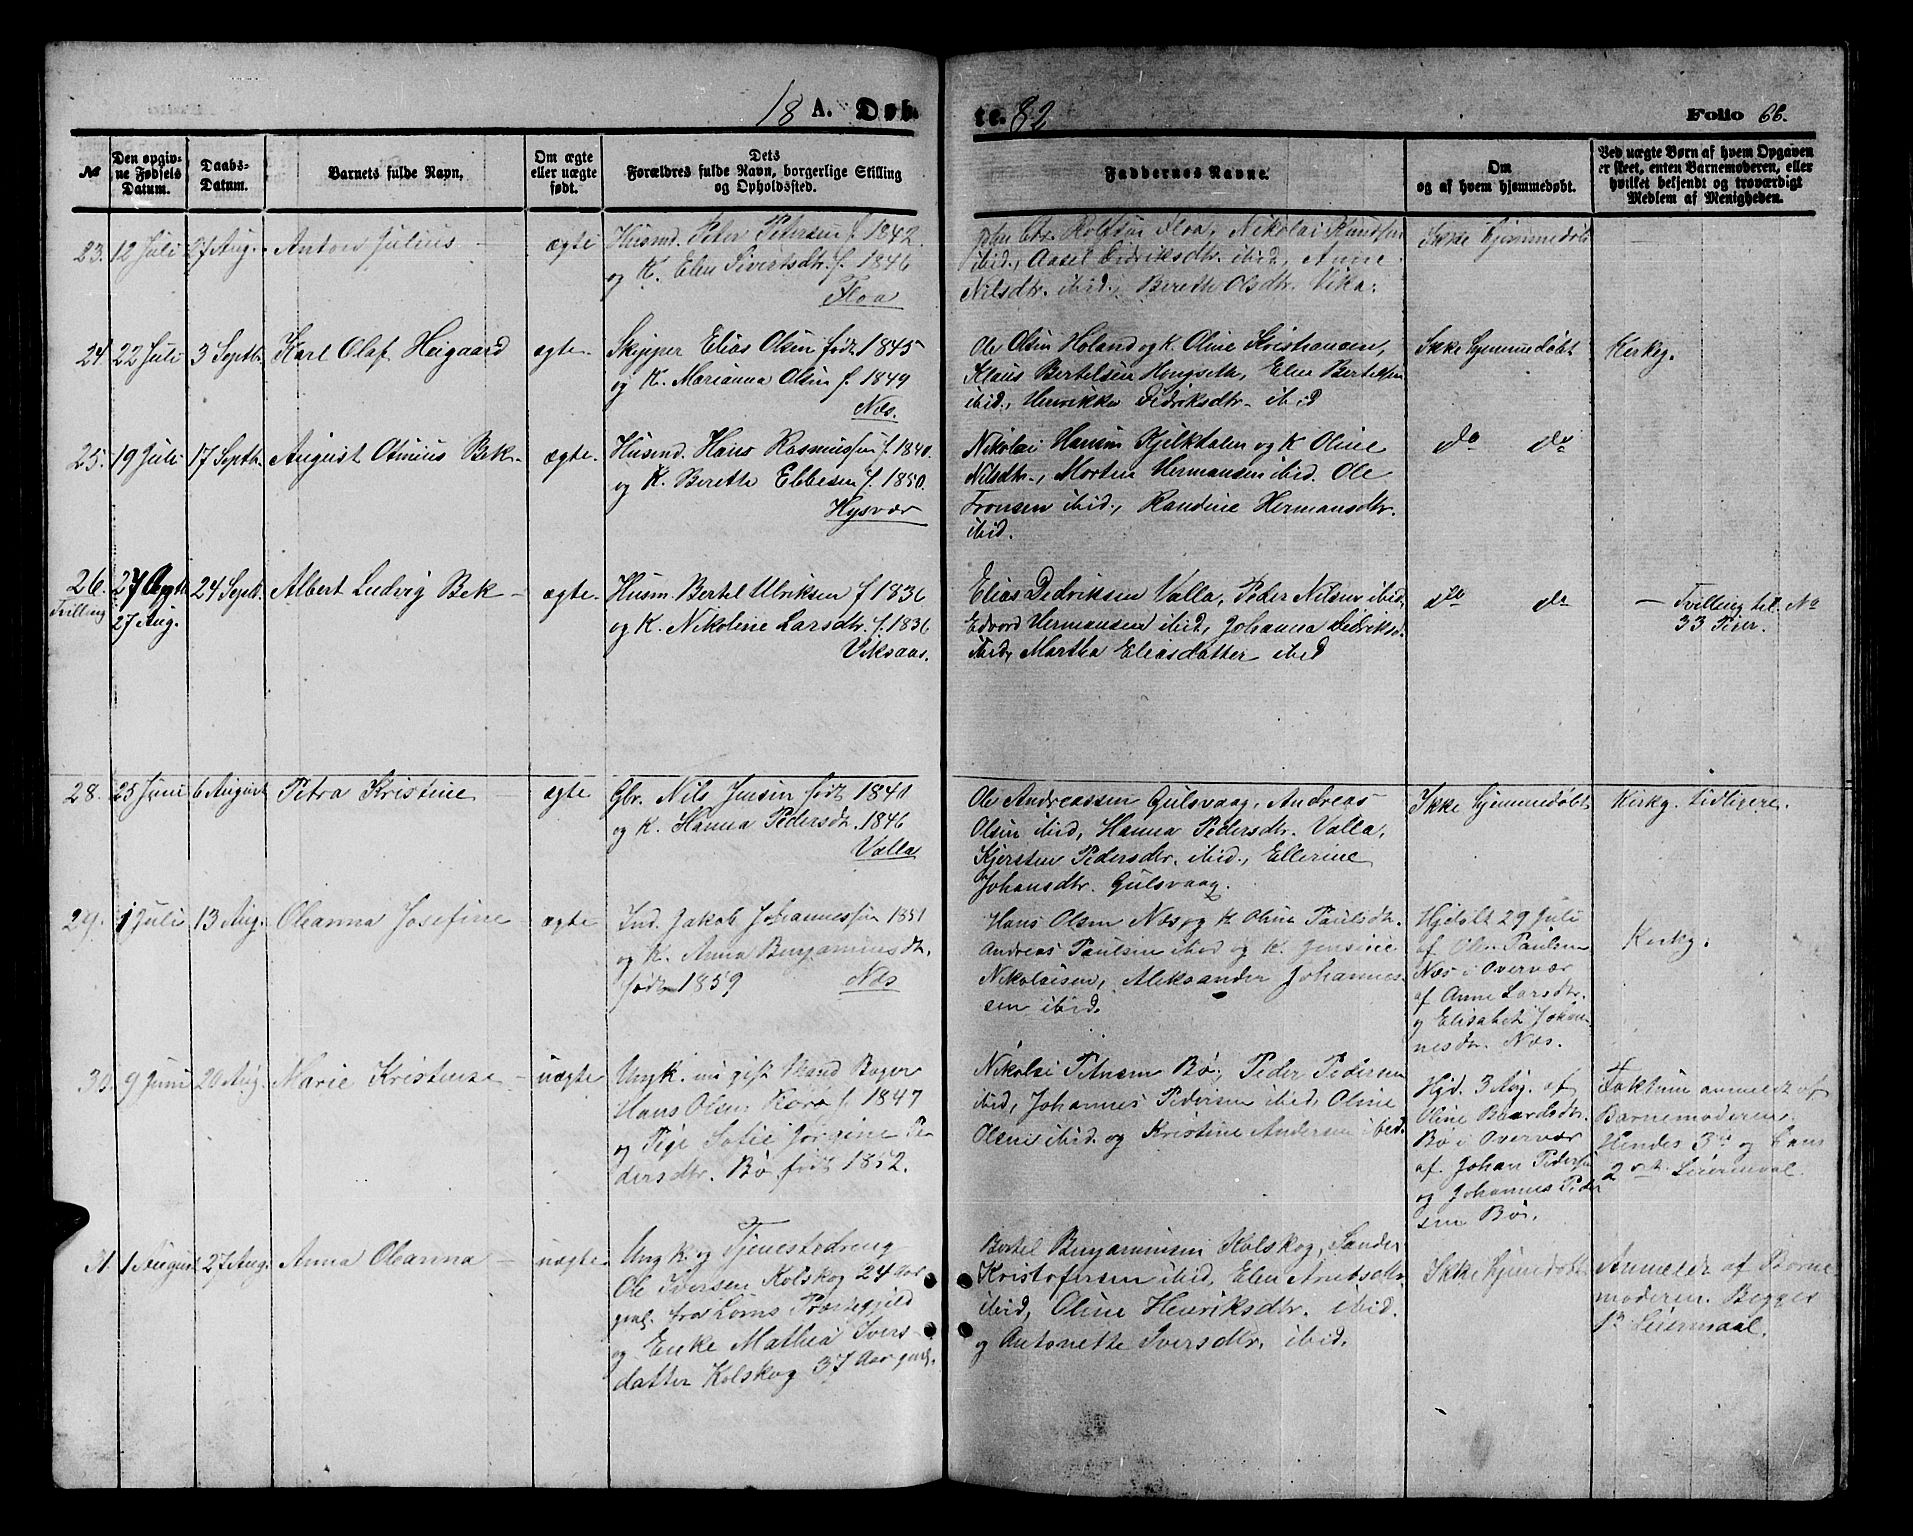 18 A. Døb-
te. 82
Folio 66.
№
Den opgiv-
ne Fødsels
Datum.
Daabs-
Datum.
Barnets fulde Navn.
Om ægte
eller uægte
født.
Dets
Forældres fulde Navn, borgerlige Stilling
og Opholdssted.
Faddernes Navne.
Om
og af hvem hjemmedøbt.
Ved uægte Børn af hvem Opgaven
er skeet, enten Barnemoderen, eller
hvilket bekjendt og troværdigt
Medlem af Menigheden.
23. 12 Juli 27 Aug. Anton Julius - ægte
Husmd. Peter Petersen f. 1842
og K. Elen Sivertsdtr. f. 1846
Floa
Chr. Rolfsen Floa, Nikolai Knudsen
ibid., Aasel Didriksdtr. ibid, Anne
Nilsdtr. ibid, Bereth Olsdtr. Vika.
Ikke hjemmedøbt
24. 22 Juli 3 Septb. Karl Olaf Heigaard ægte
Skipper Elias Olsen født 1845
og K. Marianna Olsen f. 1849
Næs.
Ole Olsen Holand og K. Oline Kristiansen,
Klaus Bertelsen Hongseth, Elen Bertelsen
ibid., Henrikke Didriksdtr. ibid
Ikke hjemmedøbt
Kirkg.
25. 19 Juli 17 Septb. August Otinius Bek ægte.
Husmd. Hans Rasmussen f. 1840.
og K. Berethe Ebbesen f. 1850.
Hysvær
Nikolai Hansen Kjilkdalen og K Oline
Nilsdtr., Morten Hermansen ibid. Ole
Tronsen ibid., Randine Hermansdtr.
ibid.
do do
26. 27 24 Septb. Albert Ludvig Bek - ægte.
Tvilling
27 Aug.
Husm. Bertel Ulriksen f 1836
og K. Nikoline Larsdtr. f. 1836
Viksaas.
Elias Didriksen Valla, Peder Nilsen ibid,
Edvard Hermansen ibid, Johanna Didriksd.
ibid, Martha Eliasdatter ibid
do do
- Tvilling til No
33 Peter.
28. 25 Juni 6 August Petra Kristine - ægte
Gbr. Nils Jensen født 1841
og K. Hanna Pedersdt. 1846
Valla
Ole Andreassen Gulsvaag, Andreas
Olsen ibid, Hanna Pedersdtr. Valla,
Kjersten Pedersdtr. ibid., Ellerine
Johansdtr. Gulsvaag.
Ikke hjemmedøbt
Kirkg. tidligere.
29. 1 Juli 13 Aug. Oleanna Josefine - ægte
Ind. Jakob Johannessen 1851
og K. Anna Benjaminsdt.
født 1859 Næs
Hans Olsen Næs og K Oline Paulsdt.
Andreas Paulsen ibid og K. Jensine
Nikolaisen, Aleksander Johannes-
sen ibid.
Hjdøbt 29 Juli
af Olen Paulsen
Næs i Overvær
af Anne Larsdtr.
og Elisabet Johan-
nesdtr. Næs.
Kirkg.
30. 9 Juni 20 Aug. Marie Kristense - uægte
Ungk. nu gift Mand Bager
Hans Olsen f. 1847
og Pige Sofie Jørgine Pe
dersdtr. Bø født 1852.
Nikolai Petersen Bø, Peder Pedersen
ibid, Johannes Pedersen ibid, Oline
Olsen ibid. og Kristine Andersen ibid.
Hjd. 3 Aug. af
Oline Baardsdtr.
Bø i Overvær
af Johan Pedersen
og Johannes Peder
sen Bø.
Faktum anmeldt af
Barnemoderen.
Hendes 3die og hans
2det Leiermaal.
31. 1 August 27 Aug. Anna Oleanna - uægte
Ungk og Tjenestedreng
Ole Iversen Kolskog 24 Aar
gml. fra Loms Præstegjeld
og Enke Mathea Ivers-
datter Kolskog 37 Aar gml.
Bertel Benjaminsen Kolskog, Sander
Kristofersen ibid, Elen Arntsdtr.
ibid, Oline Henriksdtr. ibid.
og Antonette Iversdtr. ibid.
Ikke hjemdøbt
Anmeldt af Barne
moderen. Begges
1ste Leiermaal.